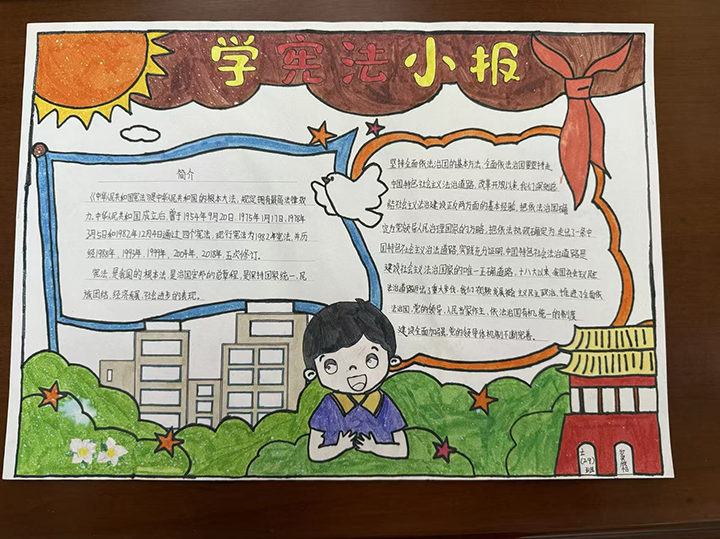 学宪法小报
简介
《中华人民共和国宪法》是中华人民共和国的根本大法，规定拥有最高法律效
力。中华人民共和国成立后，曾于1954年9月20日、1975年1月17日、1978年
3月5日和1982年12月4日通过四个宪法，现行宪法为1982年宪法，并历
经1988年、1993年、1999年、2004年、2018年五次修订。
宪法是我国的根本法，是治国安邦的总章程，是保持国家统一、民
族团结、经济发展、社会进步的表现。
坚持全面依法治国的基本方法，全面依法治国要坚持走
中国特色社会主义法治道路。改革开放以来，我们深刻总
结社会主义法治建设正反两方面的基本经验，把依法治国确
定为党领导人民治理国家的方略，把依法执政确定为，走出了一条中
国特色社会主义法治道路，实践充分证明，中国特色社会法治道路是
建设社会主义法治国家的唯一正确道路，十八大以来，我国在
法治道路 重大变化，我们 发展社会主义民主政治，推进了全面依
法治国，党的领导、人民当家作主、依法治国有机统一的制度
建设全面加强，党的领导体制机制不断完善。
(29)
班